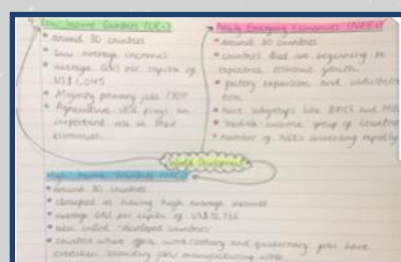 Low Income Countries (LICs)
• around 30 countries
• low average incomes
• average GNI per capita of
US$1,045
• Majority primary jobs
• Agriculture still plays an
important role in their
economies.
Newly Emerging Economies (NEEs)
• around 80 countries
• countries that are beginning to
experience economic growth.
• factory expansion and
• have subgroups like BRICS and
• middle-income group of countries
• number of NEEs increasing rapidly
World Development
High Income Countries (HICs)
• around 80 countries
• classified as having high average incomes
• average GNI per capita of US$12,
• also called 'developed countries'
• countries where office work/tertiary and quaternary jobs have
overtaken secondary jobs/manufacturing work